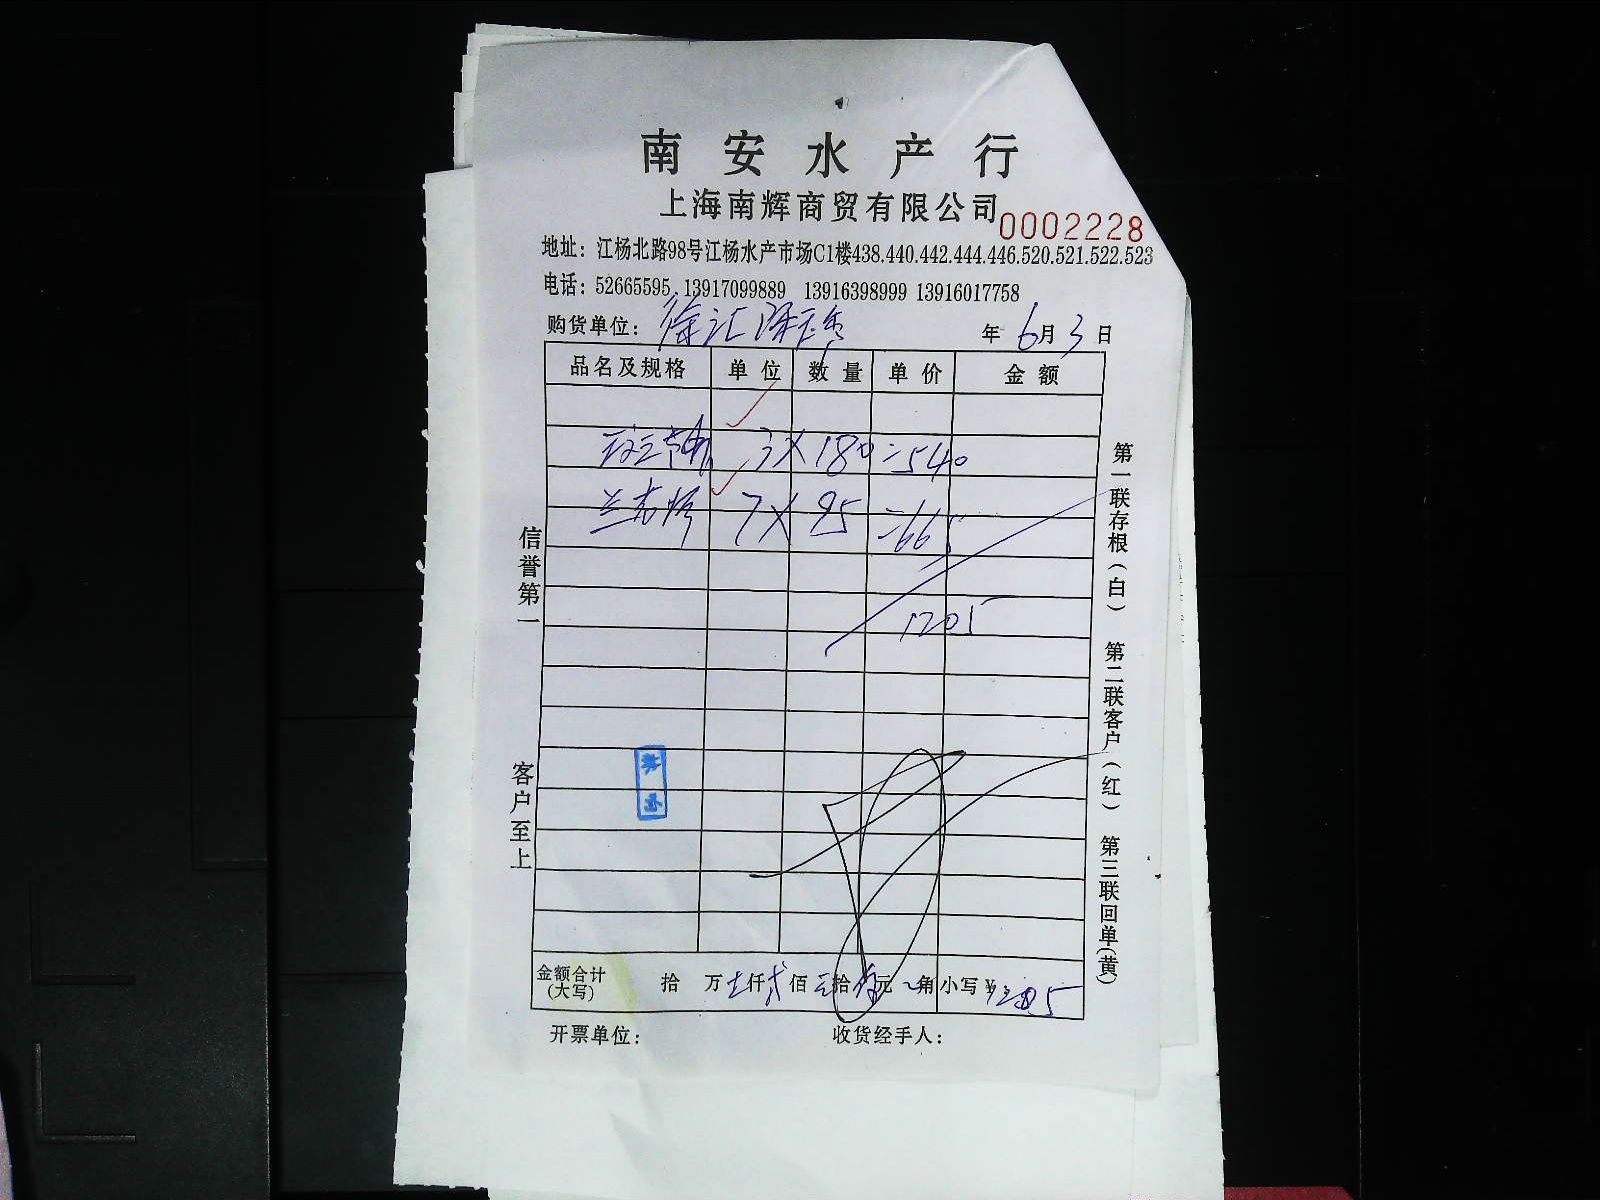 南安水产行
上海南辉商贸有限公司 0002228
地址：江杨北路98号江杨水产市场C1楼438.440.442.444.446.520.521.522.523
电话：52665595 13917099889 13916398999 13916017758
购货单位：徐汇 年6月3日
品名及规格 单位 数量 单价 金额
3×180=540
7×95=665
1205
金额合计(大写) 拾 万 仟 贰 佰 拾 伍 元 角 小写¥：1205
开票单位： 收货经手人：
信誉第一
客户至上
第一联存根(白) 第二联客户(红) 第三联回单(黄)